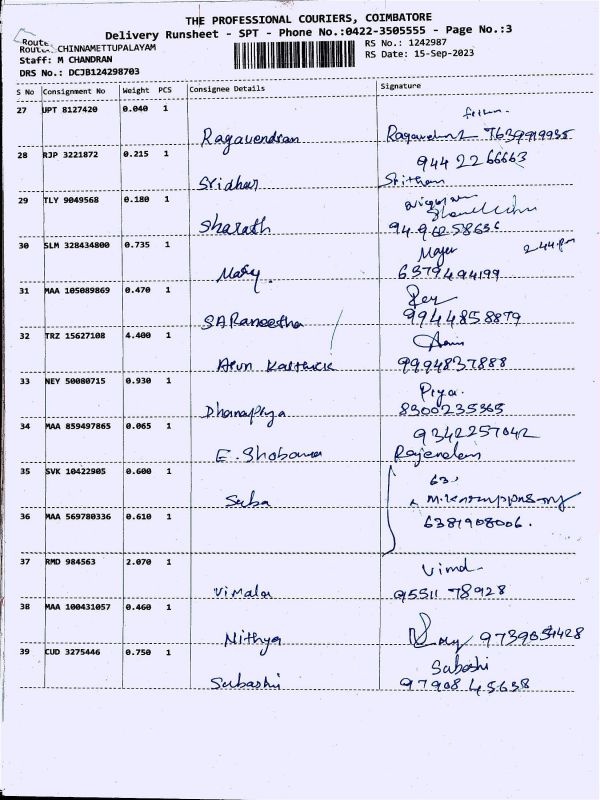 THE PROFESSIONAL COURIERS, COIMBATORE
Delivery Runsheet - SPT - Phone No.:0422-3505555 - Page No.:3
Route
Route: CHINNAMETTUPALAYAM
RS No.: 1242987
Staff: M CHANDRAN
RS Date: 15-Sep-2023
DRS No.: DCJB124298703
S No Consignment No Weight PCS Consignee Details Signature
27 UPT 8127420 0.040 1
Ragavendran 7639919935
28 RJP 3221872 0.215 1 944 22 66663
Sridhar
29 TLY 9049568 0.180 1
Sharath
30 SLM 328434800 0.735 1 2:44 pm
Mary. 6379494199
31 MAA 105089869 0.470 1
SARaneetha 9944858879
32 TRZ 15627108 4.400 1
Arun Karthick 9994837888
33 NEY 50080715 0.930 1 Priya.
Dhanapriya 8300235365
34 MAA 859497865 0.065 1 9342257042
E. Shobana Rajendran
35 SVK 10422905 0.600 1 63
Suba
36 MAA 569780336 0.610 1 6381908006.
37 RMD 984563 2.070 1 Vimal
Vimala 95511 78928
38 MAA 100431057 0.460 1
Nithya
39 CUD 3275446 0.750 1 Subashi
Subashi 97908 45638